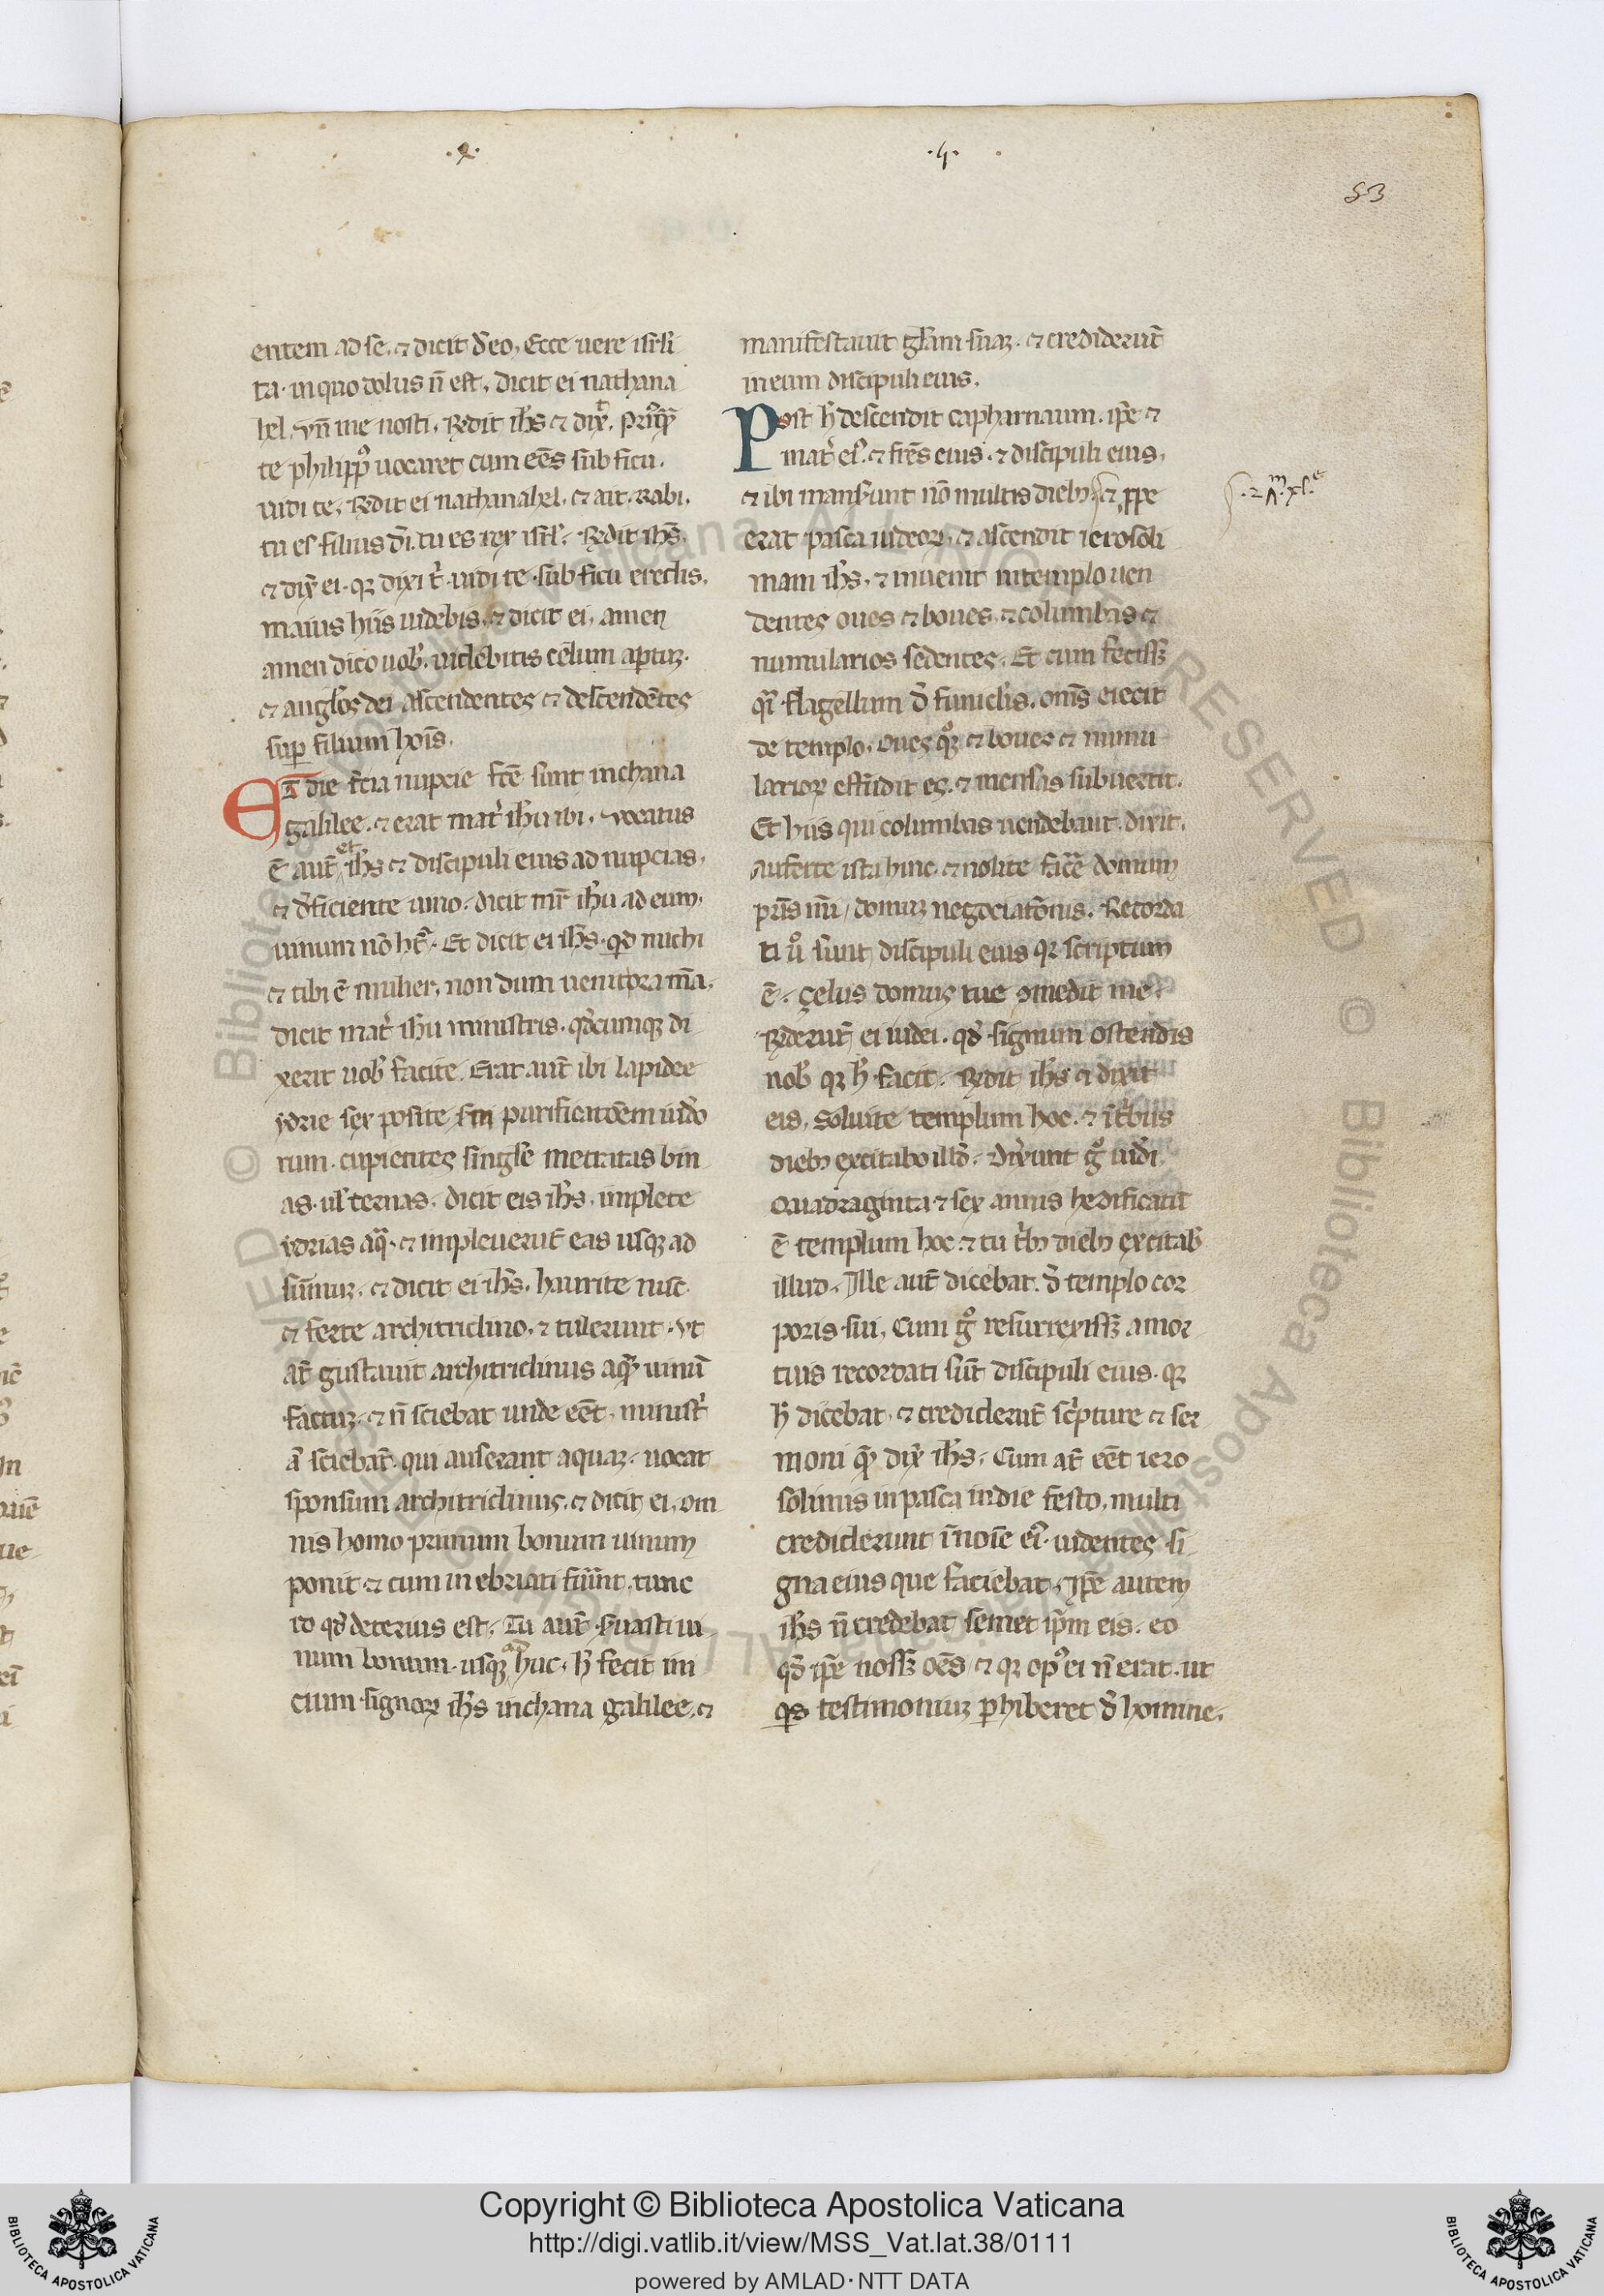 .2. .4.
53
entem ad se. ⁊ dicit đ eo. Ecce uere isrƚi
ta. in quo dolus n̄ est. Dicit ei nathana
hel. Vn̄ me nosti. R̄dit ihs̄ ⁊ dix̄. Priusq̄
te philipp᷒ uocaret cum eēs sub ficu.
uidi te. R̄dit ei nathanahel. ⁊ ait. Rabi.
tu es filius dī. tu es rex isrƚ. R̄dit ihs̄.
⁊ dix̄ ei. qꝛ dixi t᷒ uidi te sub ficu credis.
maius hiis uidebis. ⁊ dicit ei. amen
amen dico uob᷒. uidebitis celum aptuꝫ.
⁊ angƚos dei ascendentes ⁊ descendētes
suꝑ filium hoīs.
ET die t̄cia nupcie fc̄e sunt in chana
galilee. ⁊ erat mat᷒ ihū ibi. Vocatus
ē aut̄ et ihs̄ ⁊ discipuli eius ad nupcias.
⁊ đficiente uino. dicit mr̄ ihū ad eum.
uinum nō hn̄t. Et dicit ei ihs̄. qđ michi
⁊ tibi ē mulier. non dum uenit ora m̄a.
dicit mat᷒ ihū ministris. qđcumqꝫ di
xerit uob᷒ facite. Erat aut̄ ibi lapidee
ydrie sex posite sm purificatōem iudeo
rum. capientes singƚe metretas bin
as. uƚ ternas. dicit eis ihs̄. implete
ydrias aq̄. ⁊ impleuerut̄ eas usqꝫ ad
sūmuꝫ. ⁊ dicit ei ihs̄. haurite nūc.
⁊ ferte architriclino. ⁊ tulerunt. Vt
at̄ gustauit architriclinus aq̄ uinū
factuꝫ. ⁊ n̄ sciebat unde eēt. minist᷒
a᷒ sciebāt qui auserant aquaꝫ. uocat
sponsum architriclinus. ⁊ dicit ei. om
nis homo primum bonum uinum
ponit. ⁊ cum inebriati fu᷒int. tunc
id qđ deterius est. Tu aut̄ s᷒uasti ui
num bonum usqꝫ ad huc. h̄ fecit ini
cium signoꝝ ihs̄ in chana galilee. ⁊
manifestauit gƚam suaꝫ. ⁊ crediderut̄
in eum discipuli eius.
Post h̄ descendit capharnaum. ipē ⁊
mat᷒ ei᷒. ⁊ fr̄es eius. ⁊ discipuli eius.
⁊ ibi manserunt nō multis dieb᷒. ⁊ ꝓpe
erat pasca iudeoꝝ. ⁊ ascendit ierosoli
mam ihs̄. ⁊ inuenit in templo uen
dentes oues ⁊ boues. ⁊ columbas ⁊
numularios sedentes. Et cum fecissꝫ
q̄i flagellum đ funicƚis. om̄s eiecit
de templo. oues q᷒qꝫ ⁊ boues ⁊ numu
larioꝝ effudit es. ⁊ mensas subuertit.
Et hiis qui columbas uendebant. dixit.
Auferte ista hinc. ⁊ nolite fac̄e domum
pr̄is mī / domuꝫ negociatōnis. Recorda
ti u᷒ sunt discipuli eius qꝛ scriptum
ē. çelus domus tue ꝯmedit me.
R̄derut̄ ei iudei. qđ signum ostendis
nob᷒ qꝛ h̄ facis. R̄dit ihs̄ ⁊ dixit
eis. Soluite templum hoc. ⁊ ī t᷒bus
dieb᷒ excitabo illđ. Dix̄unt g᷒ iuđi.
Quadraginta ⁊ sex annis hedificatū
ē templum hoc. ⁊ tu t᷒b᷒ dieb᷒ excitab᷒
illud. Ille aut̄ dicebat. đ templo cor
poris sui. Cum g᷒ resurrexissꝫ a mor
tuis recordati sūt discipuli eius. qꝛ
h̄ dicebat. ⁊ crediderut̄ sc᷒pture ⁊ ser
moni q̄ dix̄ ihs̄. Cum at̄ eēt iero
solimis in pasca in die festo. multi
crediderunt ī noīe ei᷒. uidentes si
gna eius que faciebat. Ipē autem
ihs̄ n̄ credebat semet ip̄m eis. eo
qđ ipē nossꝫ oēs. ⁊ qꝛ op᷒ ei n̄ erat. ut
q̄s testimoniuꝫ ꝑhiberet đ homine.
Copyright © Biblioteca Apostolica Vaticana
http://digi.vatlib.it/view/MSS_Vat.lat.38/0111
powered by AMLAD·NTT DATA
BIBLIOTECA APOSTOLICA VATICANA
BIBLIOTECA APOSTOLICA VATICANA